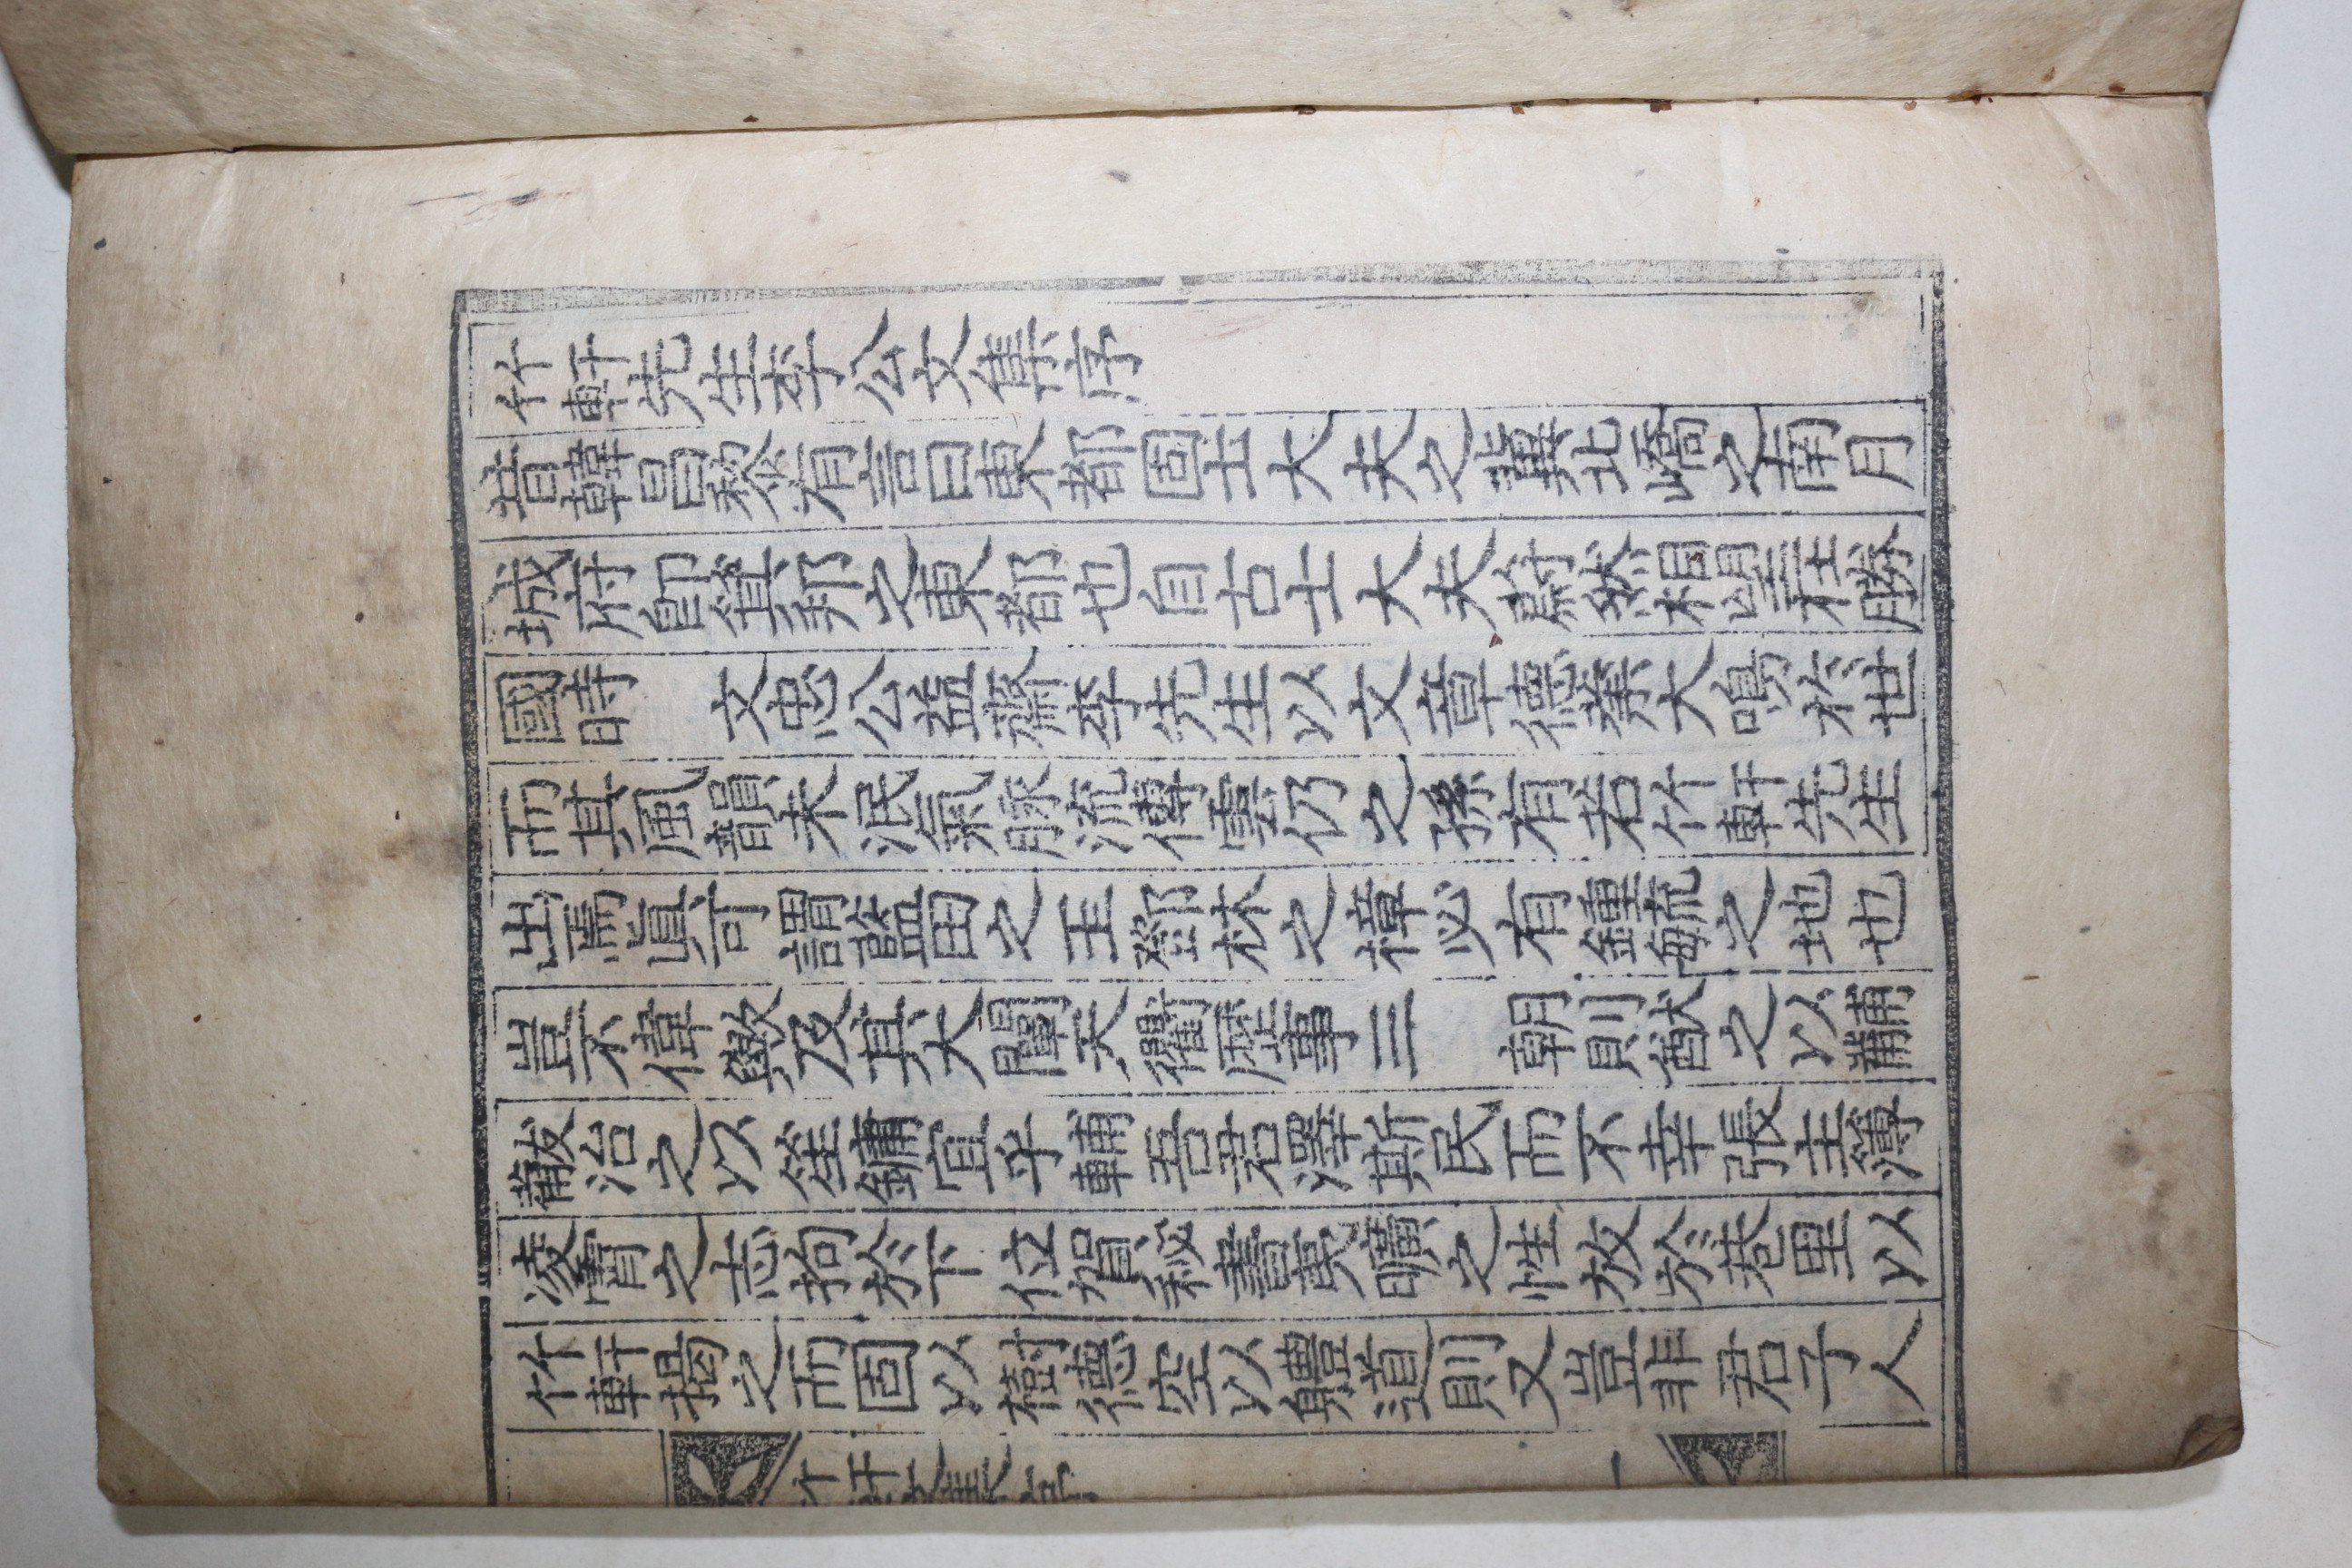 竹軒先生李公文集序
昔韓昌黎有言曰東都固士大夫之冀北嶠之南月
城府卽箕邦之東都也自古士大夫蔚然相望至在勝
國時 文忠公益齋李先生以文章德業大鳴於世
而其風韻未泯氣脉流傳雲仍之孫有若竹軒先生
出焉眞可謂藍田之玉鄧林之樟必有鍾毓之地也
豈不偉歟及其大闡天衢歷事三 朝則猷之以黼
黻治之以笙鏞宜乎輔吾君澤斯民而不幸張主簿
凌霄之志拘於下位賀秘書夷曠之性放於巷里以
竹軒揭之而固以樹德空以軆道則又豈非君子人
竹軒文集序